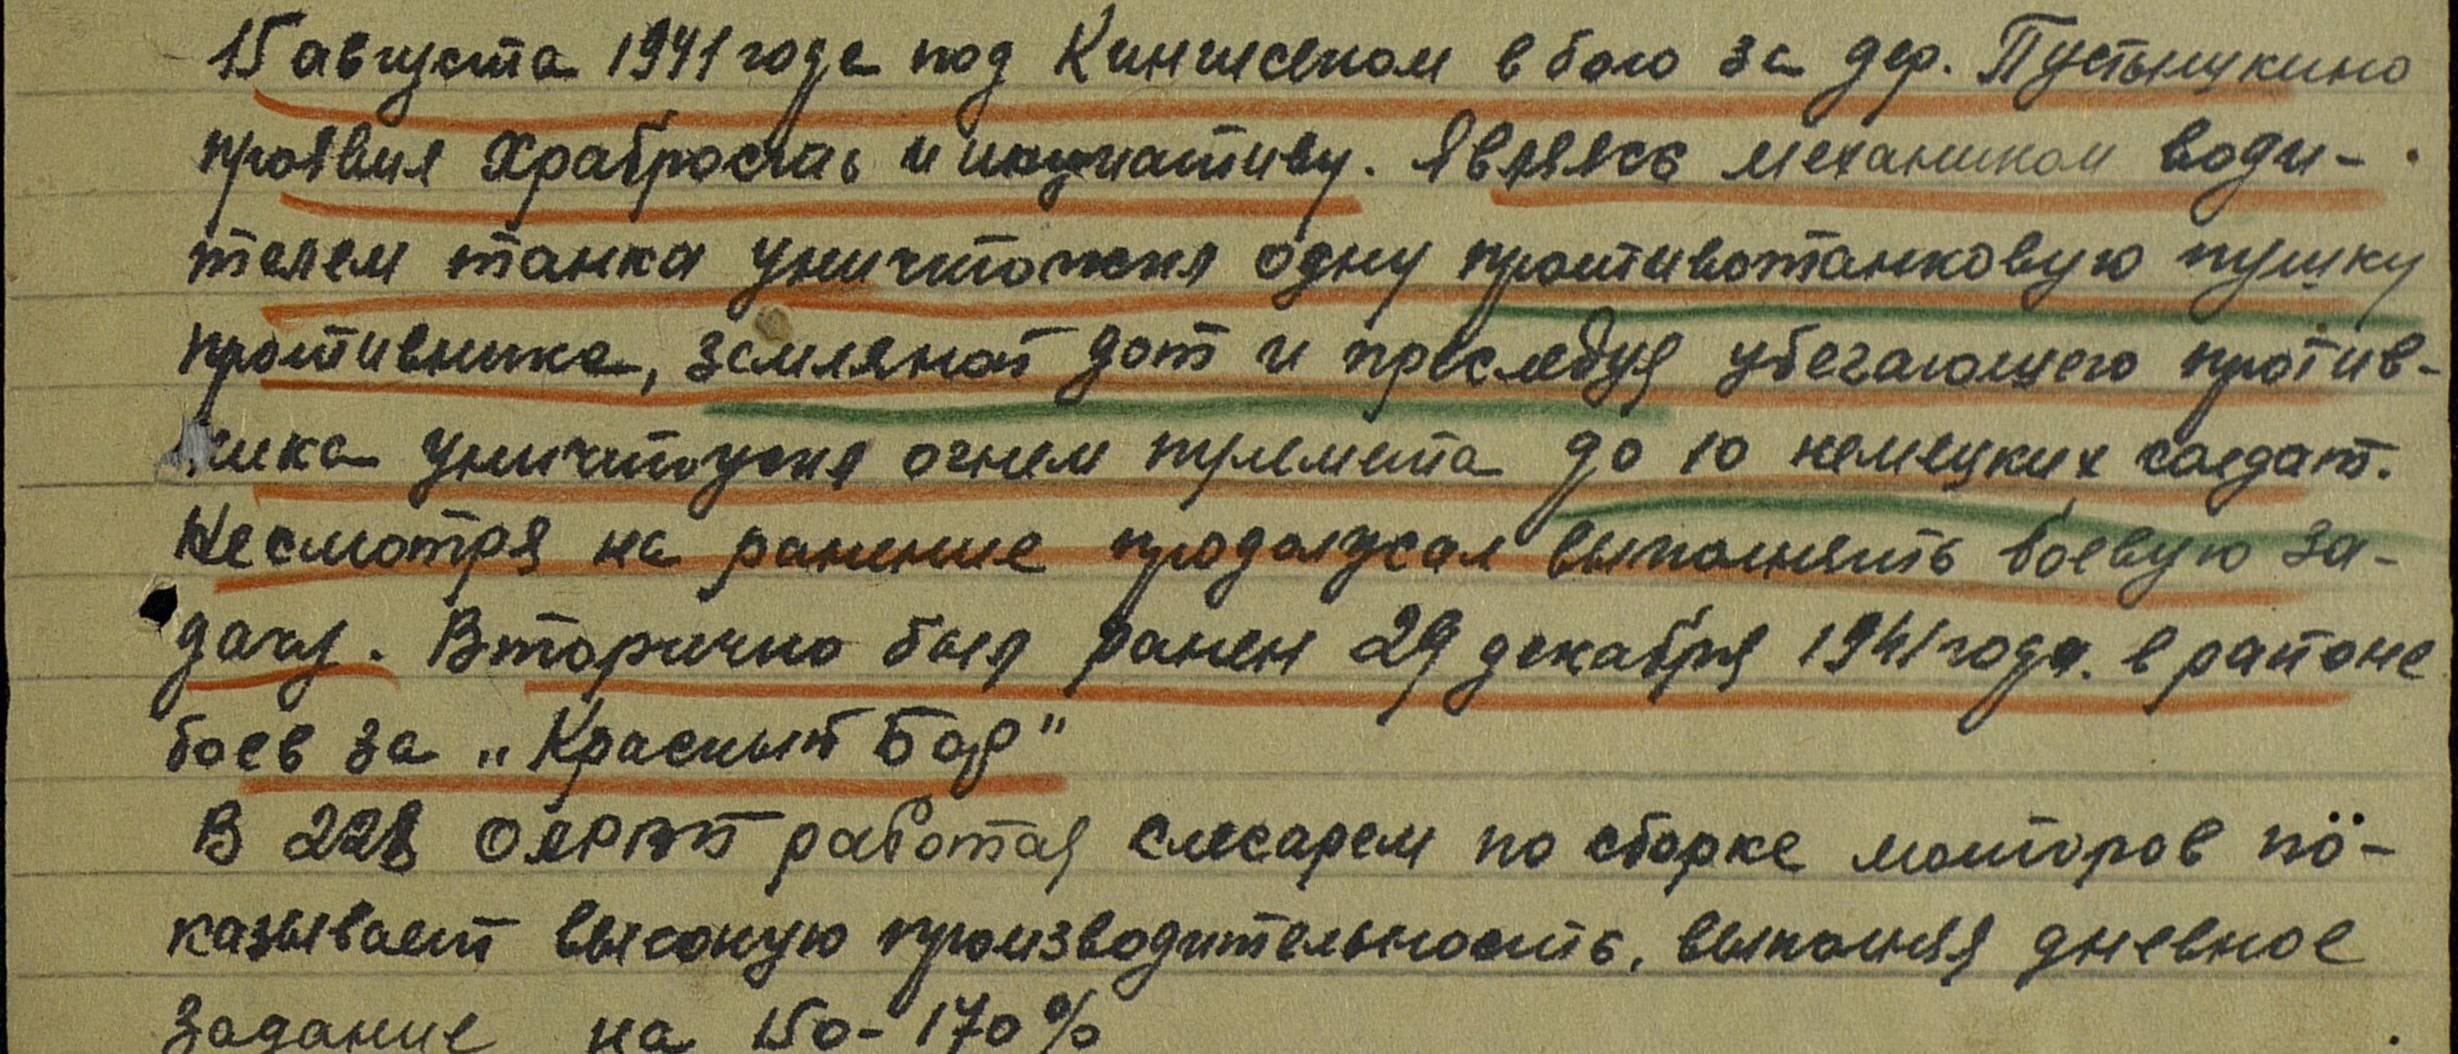 15 августа 1941 года под Кингисепом в бою за дер. Пустылукино
проявил храбрость и инициативу. Являясь механиком води-
телем танка уничтожил одну противотанковую пушку
противника, земляной дот и преследуя убегающего против-
ника уничтожил огнем пулемета до 10 немецких солдат.
Несмотря на ранение продолжал выполнять боевую за-
дачу. Вторично был ранен 29 декабря 1941 года. в районе
боев за „Красный Бор"
В 228 работая слесарем по сборке моторов по-
казывает высокую производительность, выполняя дневное
задание на 150-170%